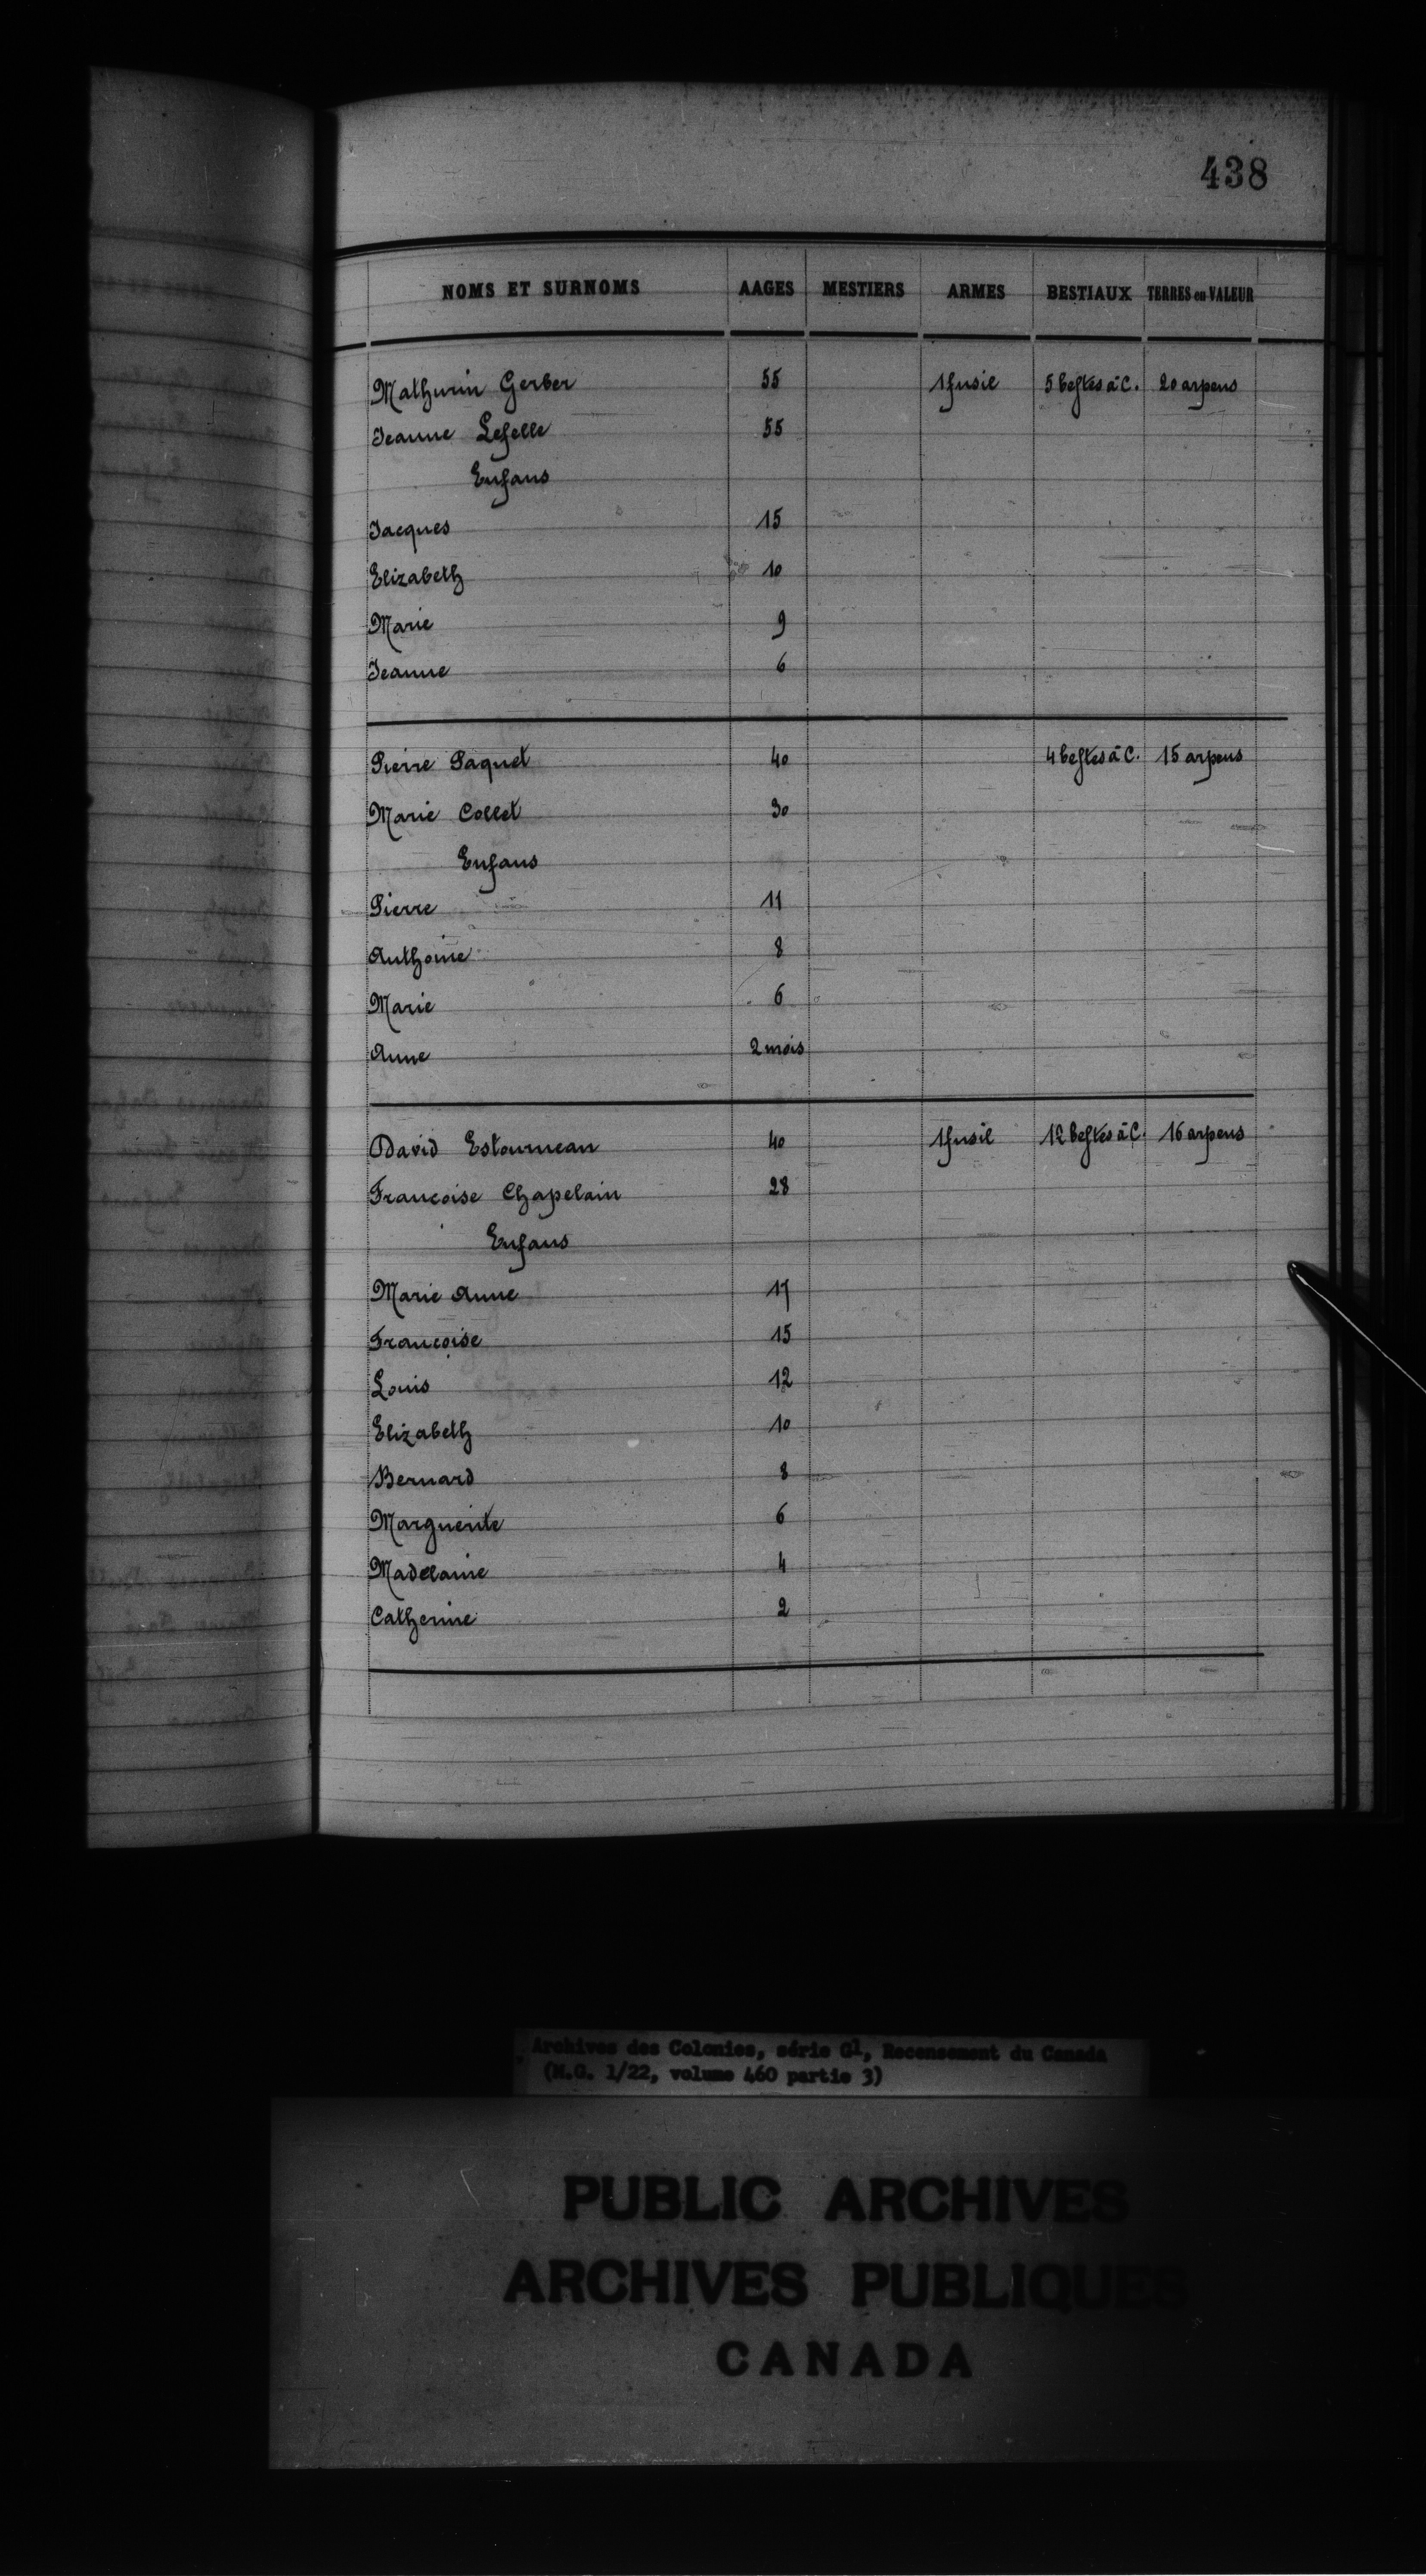 438
NOMS ET SURNOMS AAGES MESTIERS ARMES BESTIAUX TERRES en VALEUR
Mathurin Gerber 55 1 fusil 5 bestes à C. 20 arpens
Jeanne Lefelle 55
Enfans
Jacques 15
Elizabeth 10
Marie 9
Jeanne 6
Pierre Paquet 40 4 bestes à C. 15 arpens
Marie Collet 30
Enfans
Pierre 11
Anthoine 8
Marie 6
Anne 2 mois
David Estourneau 40 1 fusil 12 bestes à C. 16 arpens
Françoise Chapelain 28
Enfans
Marie Anne 17
Françoise 15
Louis 12
Elizabeth 10
Bernard 8
Marguerite 6
Madelaine 4
Catherine 2
Archives des Colonies, série G1, Recensement du Canada
(M.G. 1/22, volume 460 partie 3)
PUBLIC ARCHIVES
ARCHIVES PUBLIQUES
CANADA